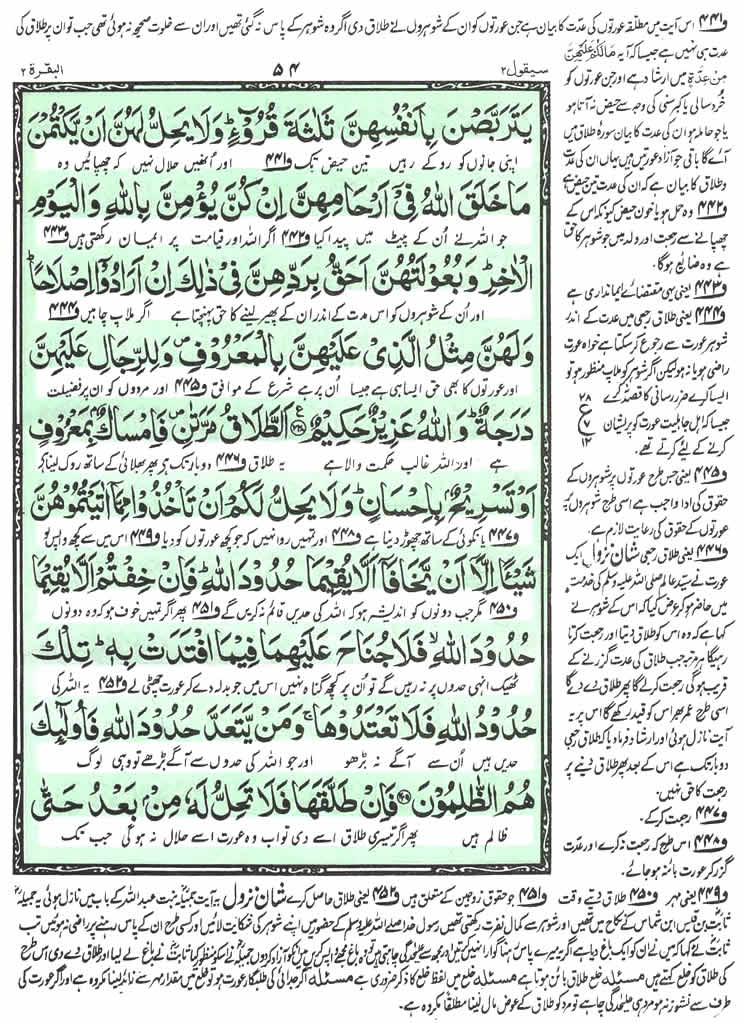 و۴۴۱ اس آیت میں مطلقہ عورتوں کی عدّت کا بیان ہے جن عورتوں کو ان کے شوہروں نے طلاق دی اگر وہ شوہر کے پاس نہ گئی تھیں اور ان سے خلوت صحیحہ نہ ہوئی تھی جب تو ان پر طلاق کی
عدت ہی نہیں ہے جیسا کہ آیہ مَالَكُمْ عَلَيْهِنَّ
مِنْ عِدَّةٍ میں ارشاد ہے اور جن عورتوں کو
خُردسالی یا کبر سنی کی وجہ سے حیض نہ آتا ہو
یا جو حاملہ ہو ان کی عدت کا بیان سورۂ طلاق میں
آئے گا باقی جو آزاد عورتیں ہیں یہاں ان کی عدّت
و طلاق کا بیان ہے کہ ان کی عدت تین حیض ہے
و۴۴۲ وہ حمل ہو یا خون حیض کیونکہ اس کے
چھپانے سے رجعت اور ولد میں جو شوہر کا حق
ہے وہ ضائع ہوگا۔
و۴۴۳ یعنی یہی مقتضائے ایمانداری ہے
و۴۴۴ یعنی طلاق رجعی میں عدت کے اندر
شوہر عورت سے رجوع کر سکتا ہے خواہ عورت
راضی ہو یا نہ ہو لیکن اگر شوہر کو ملاپ منظور ہو تو
ایسا کرے ضرر رسانی کا قصد نہ کرے
جیسا کہ اہل جاہلیت عورت کو پریشان
کرنے کے لیے کرتے تھے۔
و۴۴۵ یعنی جس طرح عورتوں پر شوہروں کے
حقوق کی ادا واجب ہے اسی طرح شوہروں پر
عورتوں کے حقوق کی رعایت لازم ہے۔
و۴۴۶ یعنی طلاق رجعی شانِ نزول ایک
عورت نے سیّد عالم صلی اللہ علیہ وسلم کی خدمت
میں حاضر ہو کر عرض کیا کہ اس کے شوہر نے
کہا ہے کہ وہ اس کو طلاق دیتا اور رجعت کرتا
رہیگا ہر مرتبہ جب طلاق کی عدت گزرنے کے
قریب ہوگی رجعت کرلے گا پھر طلاق دے دے گا
اسی طرح عمر بھر اس کو قید رکھے گا اس پر یہ
آیت نازل ہوئی اور ارشاد فرما دیا کہ طلاق رجعی
دو بار تک ہے اس کے بعد پھر طلاق دینے پر
رجعت کا حق نہیں۔
و۴۴۷ رجعت کر کے۔
و۴۴۸ اس طرح کہ رجعت نہ کرے اور عدّت
گزر کر عورت بائنہ ہو جائے۔
البقرة ۲
۵۴
سیقول ۲
يَتَرَبَّصْنَ بِاَنْفُسِهِنَّ ثَلٰثَةَ قُرُوْٓءٍ ؕ وَلَا يَحِلُّ لَهُنَّ اَنْ يَّكْتُمْنَ
اپنی جانوں کو روکے رہیں تین حیض تک و۴۴۱ اور انھیں حلال نہیں کہ چھپائیں وہ
مَا خَلَقَ اللّٰهُ فِیْۤ اَرْحَامِهِنَّ اِنْ كُنَّ يُؤْمِنَّ بِاللّٰهِ وَالْيَوْمِ
جو اللہ نے اُن کے پیٹ میں پیدا کیا و۴۴۲ اگر اللہ اور قیامت پر ایمان رکھتی ہیں و۴۴۳
الْاٰخِرِ ؕ وَبُعُوْلَتُهُنَّ اَحَقُّ بِرَدِّهِنَّ فِیْ ذٰلِكَ اِنْ اَرَادُوْۤا اِصْلَاحًا ؕ
اور اُن کے شوہروں کو اس مدت کے اندر ان کے پھیر لینے کا حق پہنچتا ہے اگر ملاپ چاہیں و۴۴۴
وَلَهُنَّ مِثْلُ الَّذِیْ عَلَيْهِنَّ بِالْمَعْرُوْفِ ۪ وَلِلرِّجَالِ عَلَيْهِنَّ
اور عورتوں کا بھی حق ایسا ہی ہے جیسا اُن پر ہے شرع کے موافق و۴۴۵ اور مردوں کو ان پر فضیلت
دَرَجَةٌ ؕ وَاللّٰهُ عَزِيْزٌ حَكِيْمٌ ۝۲۲۸ اَلطَّلَاقُ مَرَّتٰنِ ۪ فَاِمْسَاكٌۢ بِمَعْرُوْفٍ
ہے اور اللہ غالب حکمت والا ہے یہ طلاق و۴۴۶ دو بار تک ہے پھر بھلائی کے ساتھ روک لینا ہے
اَوْ تَسْرِيْحٌۢ بِاِحْسَانٍ ؕ وَلَا يَحِلُّ لَكُمْ اَنْ تَاْخُذُوْا مِمَّاۤ اٰتَيْتُمُوْهُنَّ
و۴۴۷ یا نکوئی کے ساتھ چھوڑ دینا ہے و۴۴۸ اور تمہیں روا نہیں کہ جو کچھ عورتوں کو دیا و۴۴۹ اس میں سے کچھ واپس لو
شَيْـًٔا اِلَّاۤ اَنْ يَّخَافَاۤ اَلَّا يُقِيْمَا حُدُوْدَ اللّٰهِ ؕ فَاِنْ خِفْتُمْ اَلَّا يُقِيْمَا
و۴۵۰ مگر جب دونوں کو اندیشہ ہو کہ اللہ کی حدیں قائم نہ کریں گے و۴۵۱ پھر اگر تمہیں خوف ہو کہ وہ دونوں
حُدُوْدَ اللّٰهِ ۙ فَلَا جُنَاحَ عَلَيْهِمَا فِيْمَا افْتَدَتْ بِهٖ ؕ تِلْكَ
ٹھیک انہی حدوں پر نہ رہیں گے تو اُن پر کچھ گناہ نہیں اس میں جو بدلہ دے کر عورت چھٹی لے و۴۵۲ یہ اللہ کی
حُدُوْدُ اللّٰهِ فَلَا تَعْتَدُوْهَا ۚ وَمَنْ يَّتَعَدَّ حُدُوْدَ اللّٰهِ فَاُولٰٓئِكَ
حدیں ہیں اُن سے آگے نہ بڑھو اور جو اللہ کی حدوں سے آگے بڑھے تو وہی لوگ
هُمُ الظّٰلِمُوْنَ ۝۲۲۹ فَاِنْ طَلَّقَهَا فَلَا تَحِلُّ لَهٗ مِنْۢ بَعْدُ حَتّٰی
ظالم ہیں پھر اگر تیسری طلاق اسے دی تو اب وہ عورت اسے حلال نہ ہوگی جب تک
۲۸
ع
۷
۱۲
و۴۴۹ یعنی مہر و۴۵۰ طلاق دیتے وقت و۴۵۱ جو حقوق زوجین کے متعلق ہیں و۴۵۲ یعنی طلاق حاصل کرے شانِ نزول یہ آیت جمیلہ بنت عبداللہ کے باب میں نازل ہوئی یہ جمیلہ
ثابت بن قیس ابن شماس کے نکاح میں تھیں اور شوہر سے کمال نفرت رکھتی تھیں رسول خدا صلی اللہ علیہ وسلم کے حضور میں اپنے شوہر کی شکایت لائیں اور کسی طرح ان کے پاس رہنے پر راضی نہ ہوئیں تب
ثابت نے کہا کہ میں نے ان کو ایک باغ دیا ہے اگر یہ میرے پاس رہنا گوارا نہیں کرتیں اور مجھ سے علیحدگی چاہتی ہیں تو وہ باغ مجھے واپس کریں میں ان کو آزاد کر دوں جمیلہ نے اس کو منظور کیا ثابت نے باغ لے لیا اور طلاق دے دی اس طرح
کی طلاق کو خلع کہتے ہیں مسئلہ خلع طلاق بائن ہوتا ہے مسئلہ خلع میں لفظ خلع کا ذکر ضروری ہے مسئلہ اگر جدائی کی طلبگار عورت ہو تو خلع میں مقدار مہر سے زائد لینا مکروہ ہے اور اگر عورت کی
طرف سے نشوز نہ ہو مرد ہی علیحدگی چاہے تو مرد کو طلاق کے عوض مال لینا مطلقاً مکروہ ہے۔